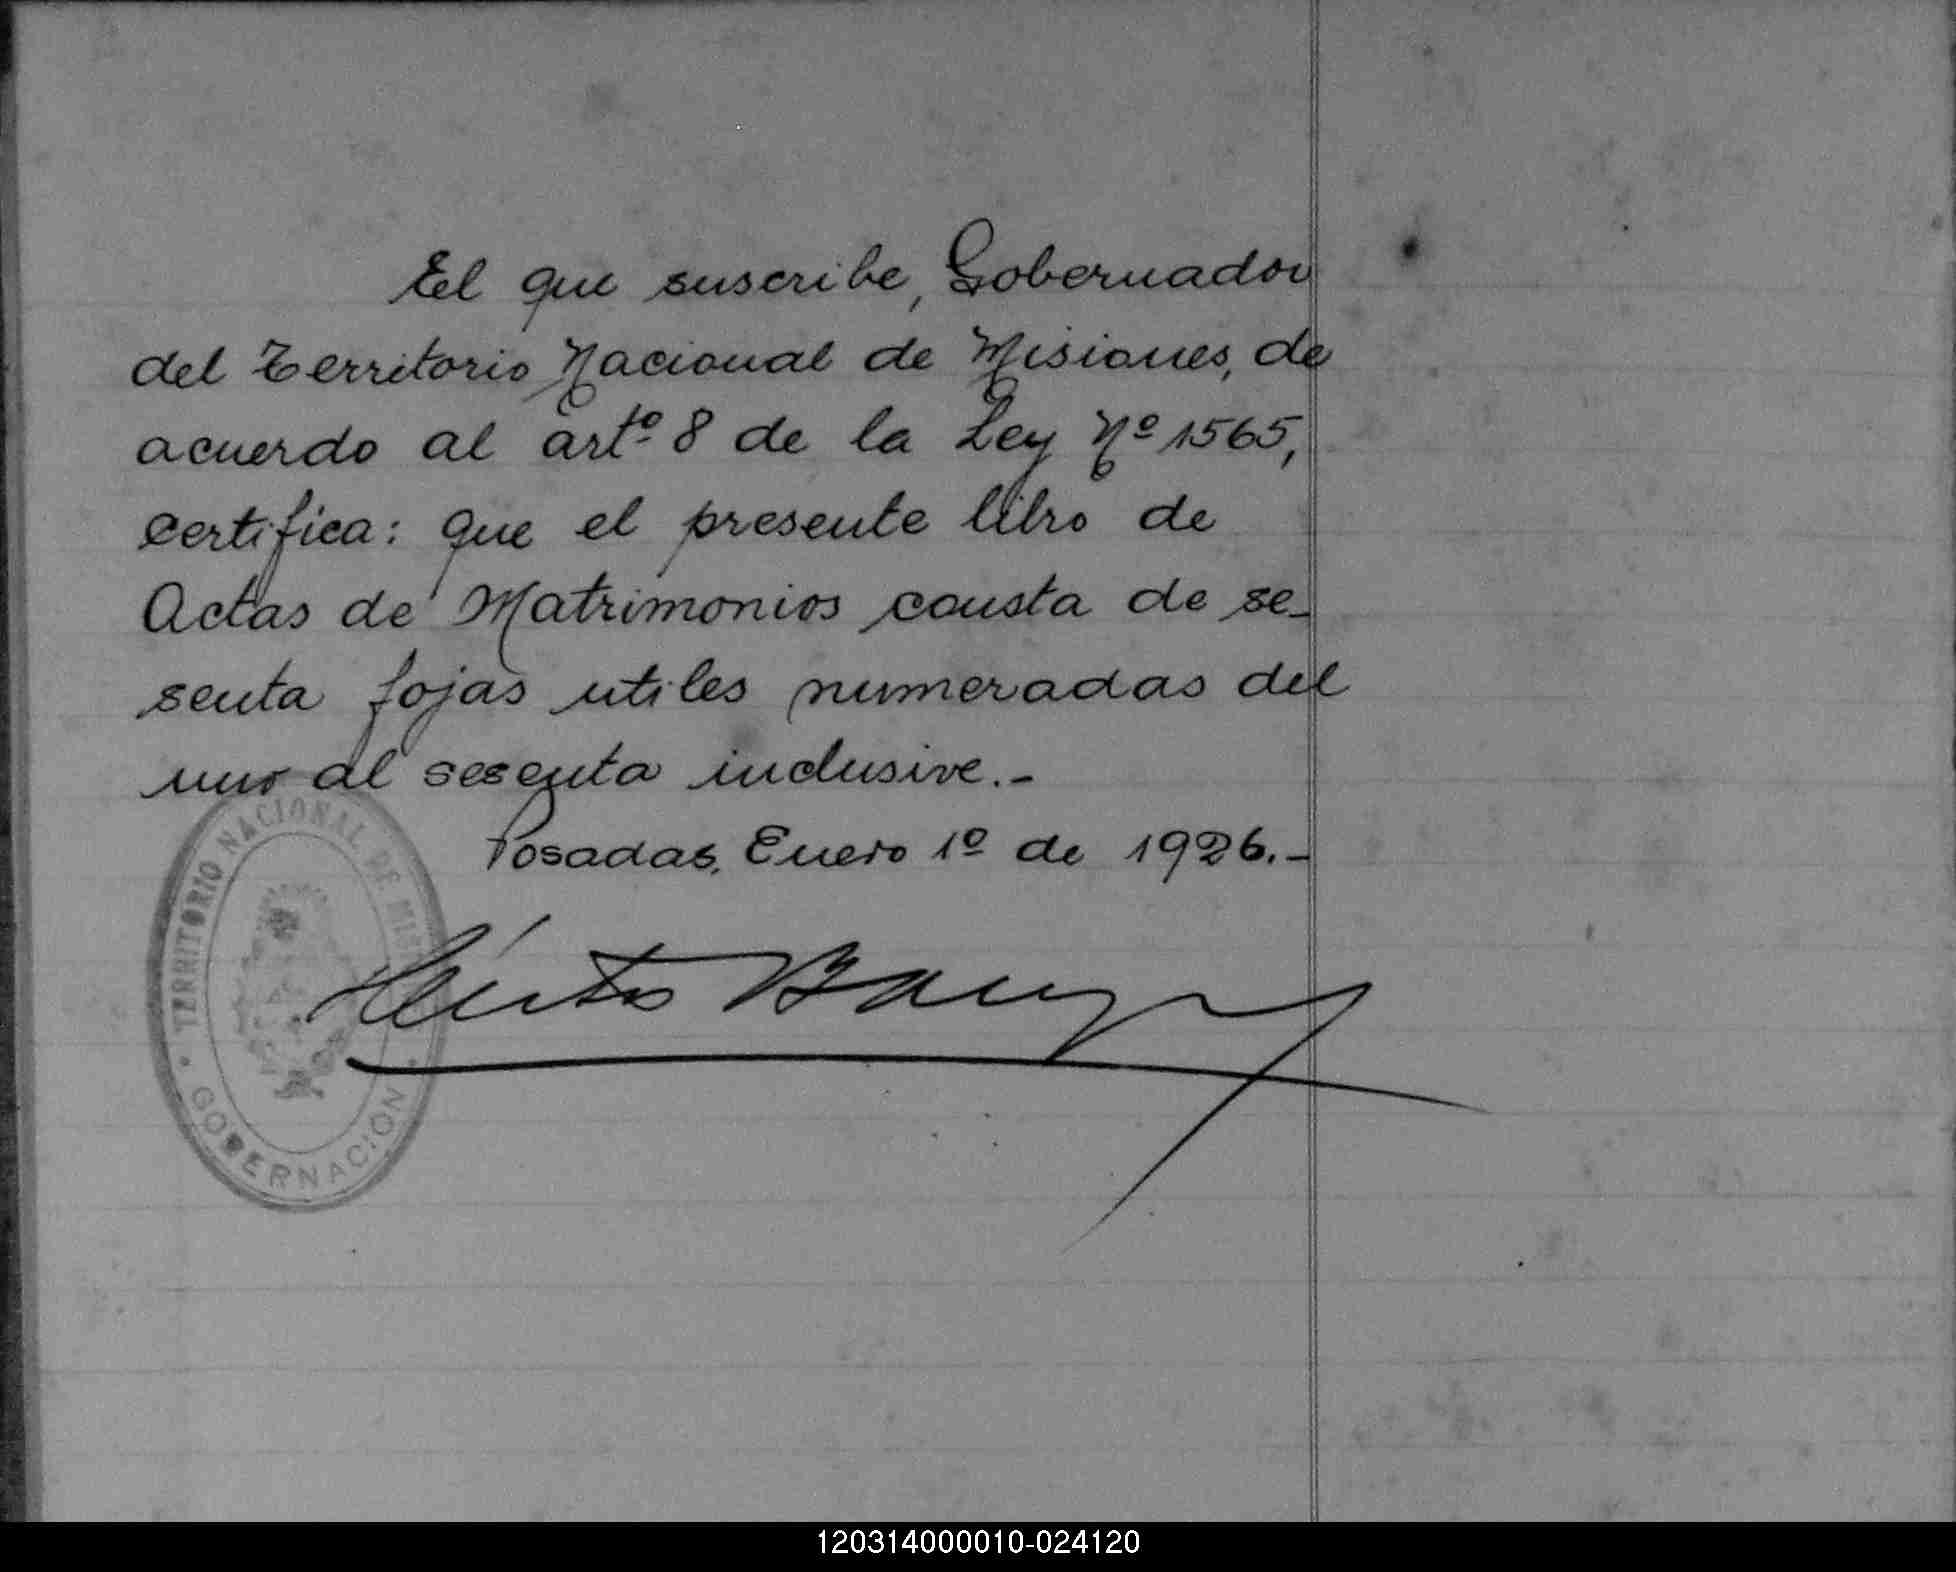 El que suscribe, Gobernador
del Territorio Nacional de Misiones, de
acuerdo al artº 8 de la Ley Nº 1565,
certifica: que el presente libro de
Actas de Matrimonios consta de se-
senta fojas utiles numeradas del
uno al sesenta inclusive.-
Posadas, Enero 1º de 1926.-
TERRITORIO NACIONAL DE MIS
GOBERNACION
Héctor Barreyro
120314000010-024120